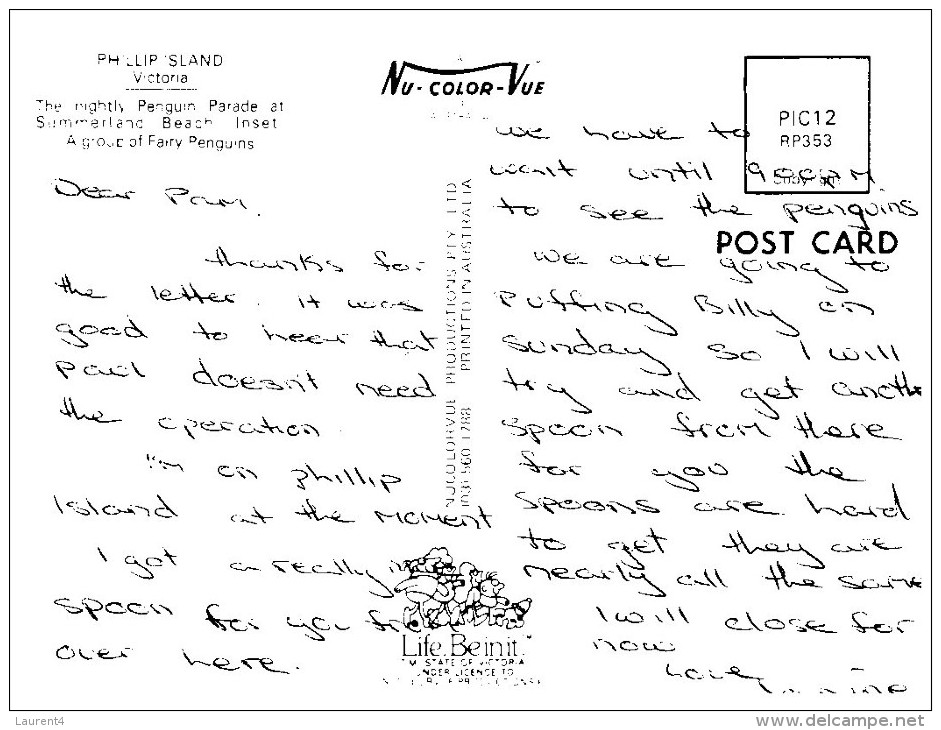 PHILLIP ISLAND
Victoria
The nightly Penguin Parade at
Summerland Beach Inset
A group of Fairy Penguins
NU-COLOR-VUE
PIC12
RP353
POST CARD
NUCOLORVUE PRODUCTIONS PTY. LTD
(03) 560 1288 PRINTED IN AUSTRALIA
Dear Pam,
thanks for
the letter. it was
good to hear that
Paul doesn't need
the operation.
I'm on phillip
Island at the moment
I got a really nice
spoon for you from
over here.
we have to
wait until 9.00pm.
to see the penguins
we are going to
Puffing Billy on
Sunday so I will
try and get another
spoon from there
for you the
spoons are hard
to get they are
nearly all the same
I will close for
now
Love,
Life. Be in it.™
T.M. STATE OF VICTORIA
UNDER LICENCE TO
Laurent4
www.delcampe.net